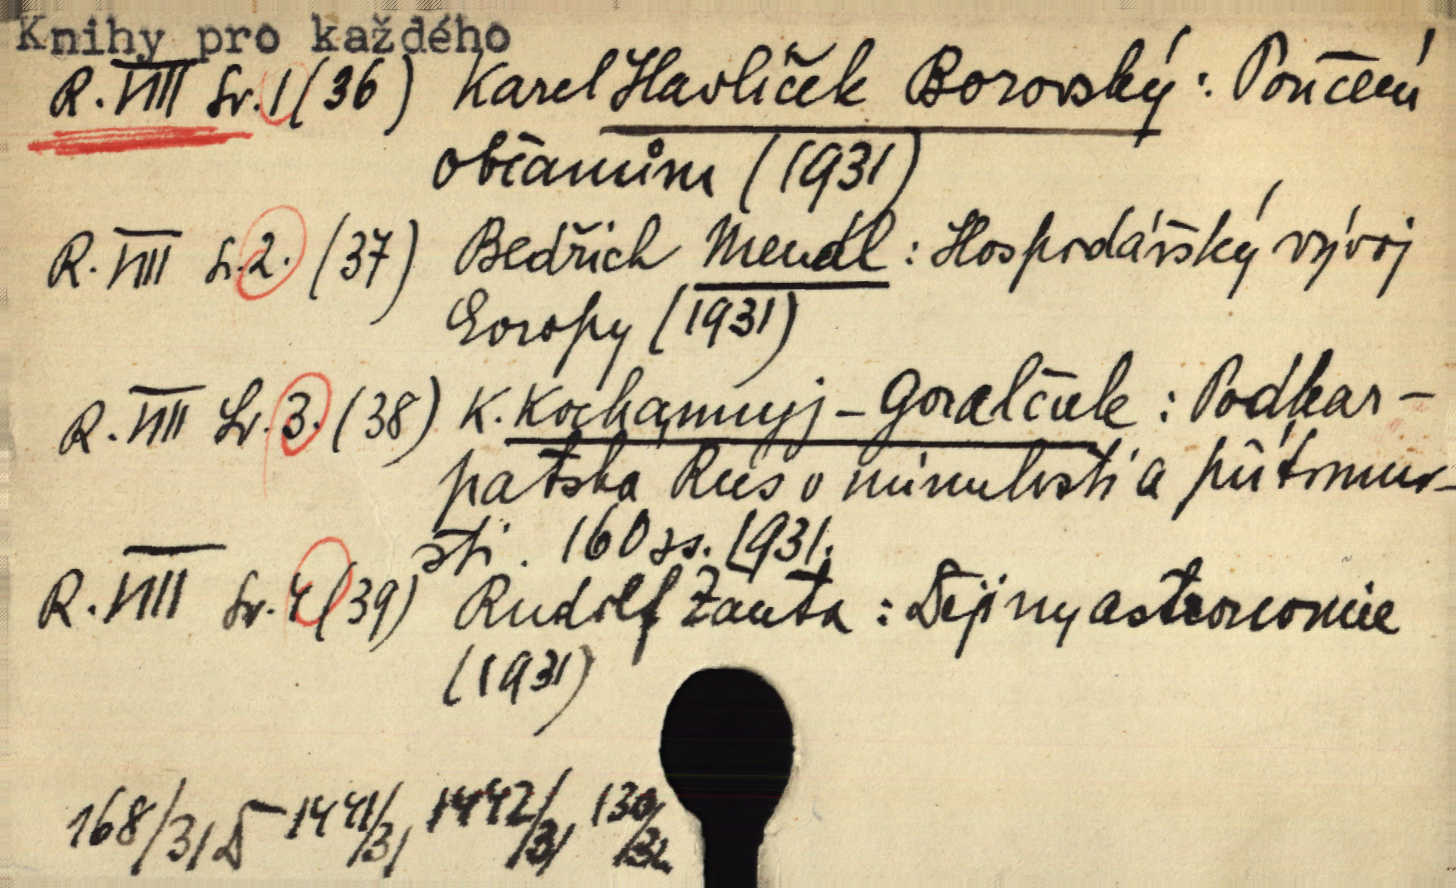 Knihy pro každého
R. VIII Sv. 1 (36) Karel Havlíček Borovský: Poučení
občanům (1931)
R. VIII Sv. 2. (37) Bedřich Mendl: Hospodářský vývoj
Evropy (1931)
R. VIII Sv. 3. (38) K. Kochannyj-Goralčuk: Podkar-
patská Rus v minulosti a přítomno-
sti. 160 ss. 1931.
R. VIII Sv. 4 (39) Rudolf Žanta: Dějiny astronomie
(1931)
168/31 D 1441/31 1442/31 130/32